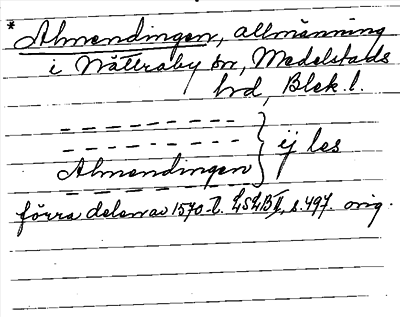 * Almendingen, allmänning
i Nättraby sn, Medelstads
hd, Blek. l.
Almendingen } ej les
förra delen av 1570-t. LSLB II, s. 497. orig.